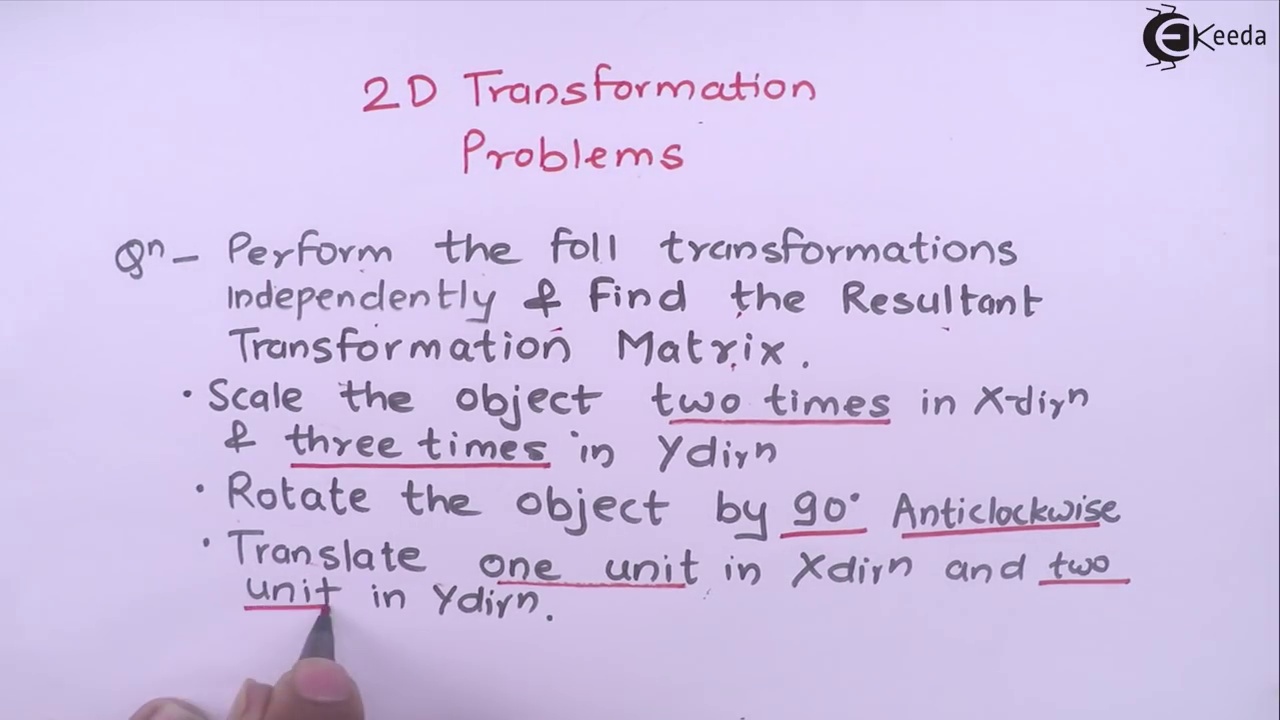 EKeeda
2D Transformation
Problems
Qn - Perform the foll transformations
Independently & Find the Resultant
Transformation Matrix.
• Scale the object two times in X-dirn
& three times in Ydirn
• Rotate the object by 90° Anticlockwise
• Translate one unit in Xdirn and two
unit in Ydirn.